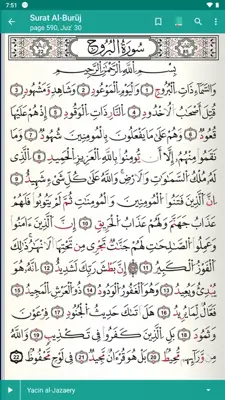 7:51
Surat Al-Burūj
page 590, Juz' 30
سُورَةُ البُرُوجِ
بِسْمِ ٱللَّهِ ٱلرَّحْمَٰنِ ٱلرَّحِيمِ
وَٱلسَّمَآءِ ذَاتِ ٱلْبُرُوجِ ١ وَٱلْيَوْمِ ٱلْمَوْعُودِ ٢ وَشَاهِدٍ وَمَشْهُودٍ
٣ قُتِلَ أَصْحَٰبُ ٱلْأُخْدُودِ ٤ ٱلنَّارِ ذَاتِ ٱلْوَقُودِ ٥ إِذْ هُمْ عَلَيْهَا
قُعُودٌ ٦ وَهُمْ عَلَىٰ مَا يَفْعَلُونَ بِٱلْمُؤْمِنِينَ شُهُودٌ ٧ وَمَا
نَقَمُوا۟ مِنْهُمْ إِلَّآ أَن يُؤْمِنُوا۟ بِٱللَّهِ ٱلْعَزِيزِ ٱلْحَمِيدِ ٨ ٱلَّذِى لَهُۥ
مُلْكُ ٱلسَّمَٰوَٰتِ وَٱلْأَرْضِ وَٱللَّهُ عَلَىٰ كُلِّ شَىْءٍ شَهِيدٌ ٩
إِنَّ ٱلَّذِينَ فَتَنُوا۟ ٱلْمُؤْمِنِينَ وَٱلْمُؤْمِنَٰتِ ثُمَّ لَمْ يَتُوبُوا۟ فَلَهُمْ
عَذَابُ جَهَنَّمَ وَلَهُمْ عَذَابُ ٱلْحَرِيقِ ١٠ إِنَّ ٱلَّذِينَ ءَامَنُوا۟
وَعَمِلُوا۟ ٱلصَّٰلِحَٰتِ لَهُمْ جَنَّٰتٌ تَجْرِى مِن تَحْتِهَا ٱلْأَنْهَٰرُ ذَٰلِكَ
ٱلْفَوْزُ ٱلْكَبِيرُ ١١ إِنَّ بَطْشَ رَبِّكَ لَشَدِيدٌ ١٢ إِنَّهُۥ هُوَ
يُبْدِئُ وَيُعِيدُ ١٣ وَهُوَ ٱلْغَفُورُ ٱلْوَدُودُ ١٤ ذُو ٱلْعَرْشِ ٱلْمَجِيدُ ١٥
فَعَّالٌ لِّمَا يُرِيدُ ١٦ هَلْ أَتَىٰكَ حَدِيثُ ٱلْجُنُودِ ١٧ فِرْعَوْنَ
وَثَمُودَ ١٨ بَلِ ٱلَّذِينَ كَفَرُوا۟ فِى تَكْذِيبٍ ١٩ وَٱللَّهُ
مِن وَرَآئِهِم مُّحِيطٌۢ ٢٠ بَلْ هُوَ قُرْءَانٌ مَّجِيدٌ ٢١ فِى لَوْحٍ مَّحْفُوظٍۭ ٢٢
Yacin al-Jazaery